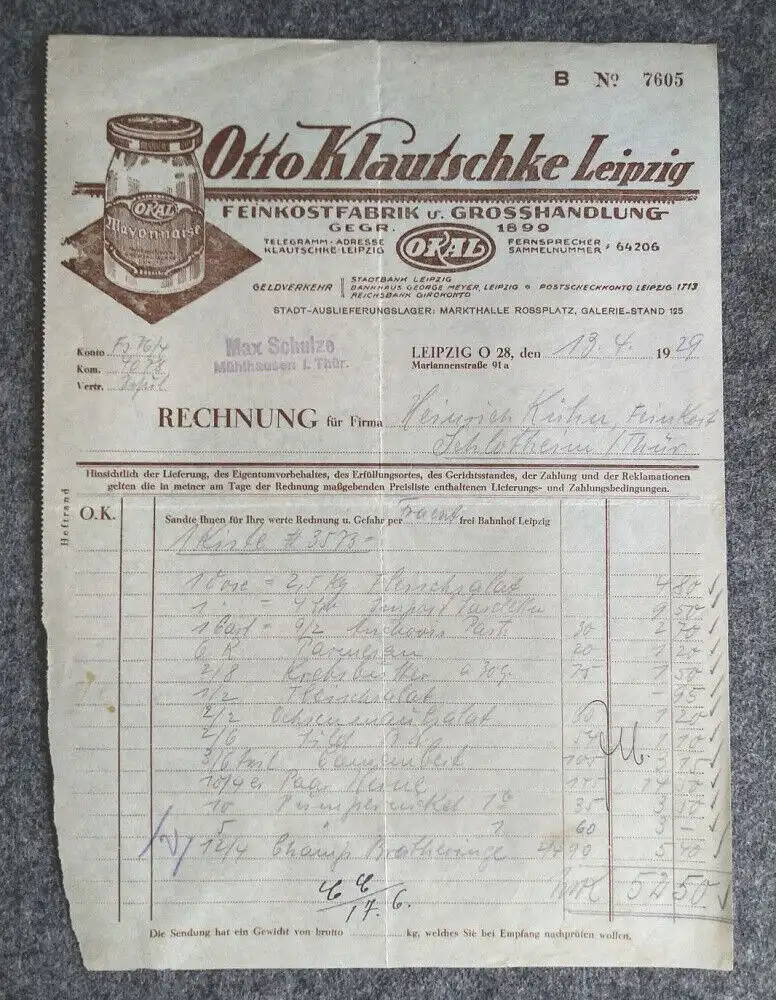 B Nº 7605
Otto Klautschke Leipzig
OKAL
Mayonnaise
FEINKOSTFABRIK u. GROSSHANDLUNG
GEGR. 1899
OKAL
TELEGRAMM-ADRESSE
KLAUTSCHKE-LEIPZIG
FERNSPRECHER
SAMMELNUMMER: 64206
GELDVERKEHR
STADTBANK LEIPZIG
BANKHAUS GEORGE MEYER, LEIPZIG
REICHSBANK GIROKONTO
POSTSCHECKKONTO LEIPZIG 1713
STADT-AUSLIEFERUNGSLAGER: MARKTHALLE ROSSPLATZ, GALERIE-STAND 125
Konto
Kom.
Vertr.
Max Schulze
Mühlhausen i. Thür.
LEIPZIG O 28, den 13.4. 1929
Mariannenstraße 91a
RECHNUNG für Firma Heinrich Kühn, Feinkost
Schlotheim/Thür
Hinsichtlich der Lieferung, des Eigentumvorbehaltes, des Erfüllungsortes, des Gerichtsstandes, der Zahlung und der Reklamationen
gelten die in meiner am Tage der Rechnung maßgebenden Preisliste enthaltenen Lieferungs- und Zahlungsbedingungen.
Heftrand
O.K.
Sandte Ihnen für Ihre werte Rechnung u. Gefahr per Fracht frei Bahnhof Leipzig
1 Kiste # 3573
1 Dose = 2,5 kg Fleischsalat 4 80
1 9 50
9/2 Anchovis Paste 30 2 70
6 R Parmesan 20 1 20
2/8 Krebsbutter a 30g. 75 1 50
1/2 Fleischsalat - 95
2/2 Ochsenmaulsalat 60 1 20
2/6 1 10
3/6 Camembert 105 3 15
175 17 50
10 Pumpernickel 35 3 50
5 60 3 -
12/4 Champ Bratheringe 90 5 40
52 50
17. 6.
Die Sendung hat ein Gewicht von brutto kg, welches Sie bei Empfang nachprüfen wollen.